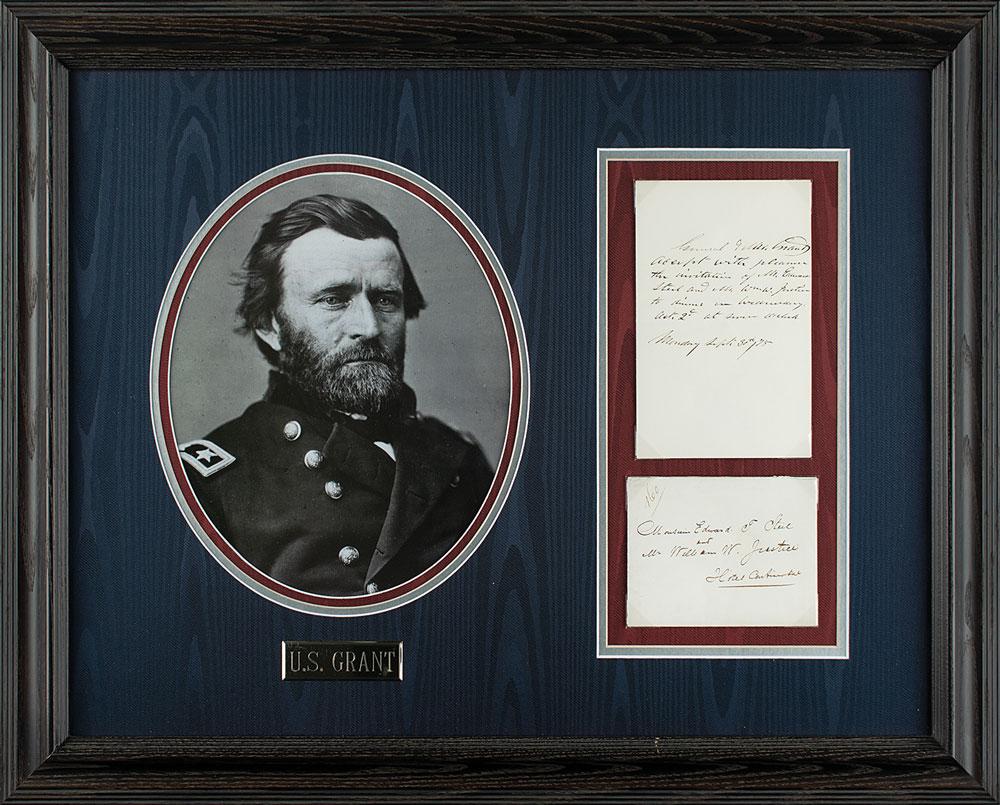 General & Mrs. Grant
accept with pleasure
the invitation of Mr. Edward
Steel and Mr. Wm W. Justice
to dinner on Wednesday
Oct. 2d at seven oclock
Monday Sept. 30th
Edward F. Steel
and
Mr William W. Justice
Hotel Continental
U.S. GRANT